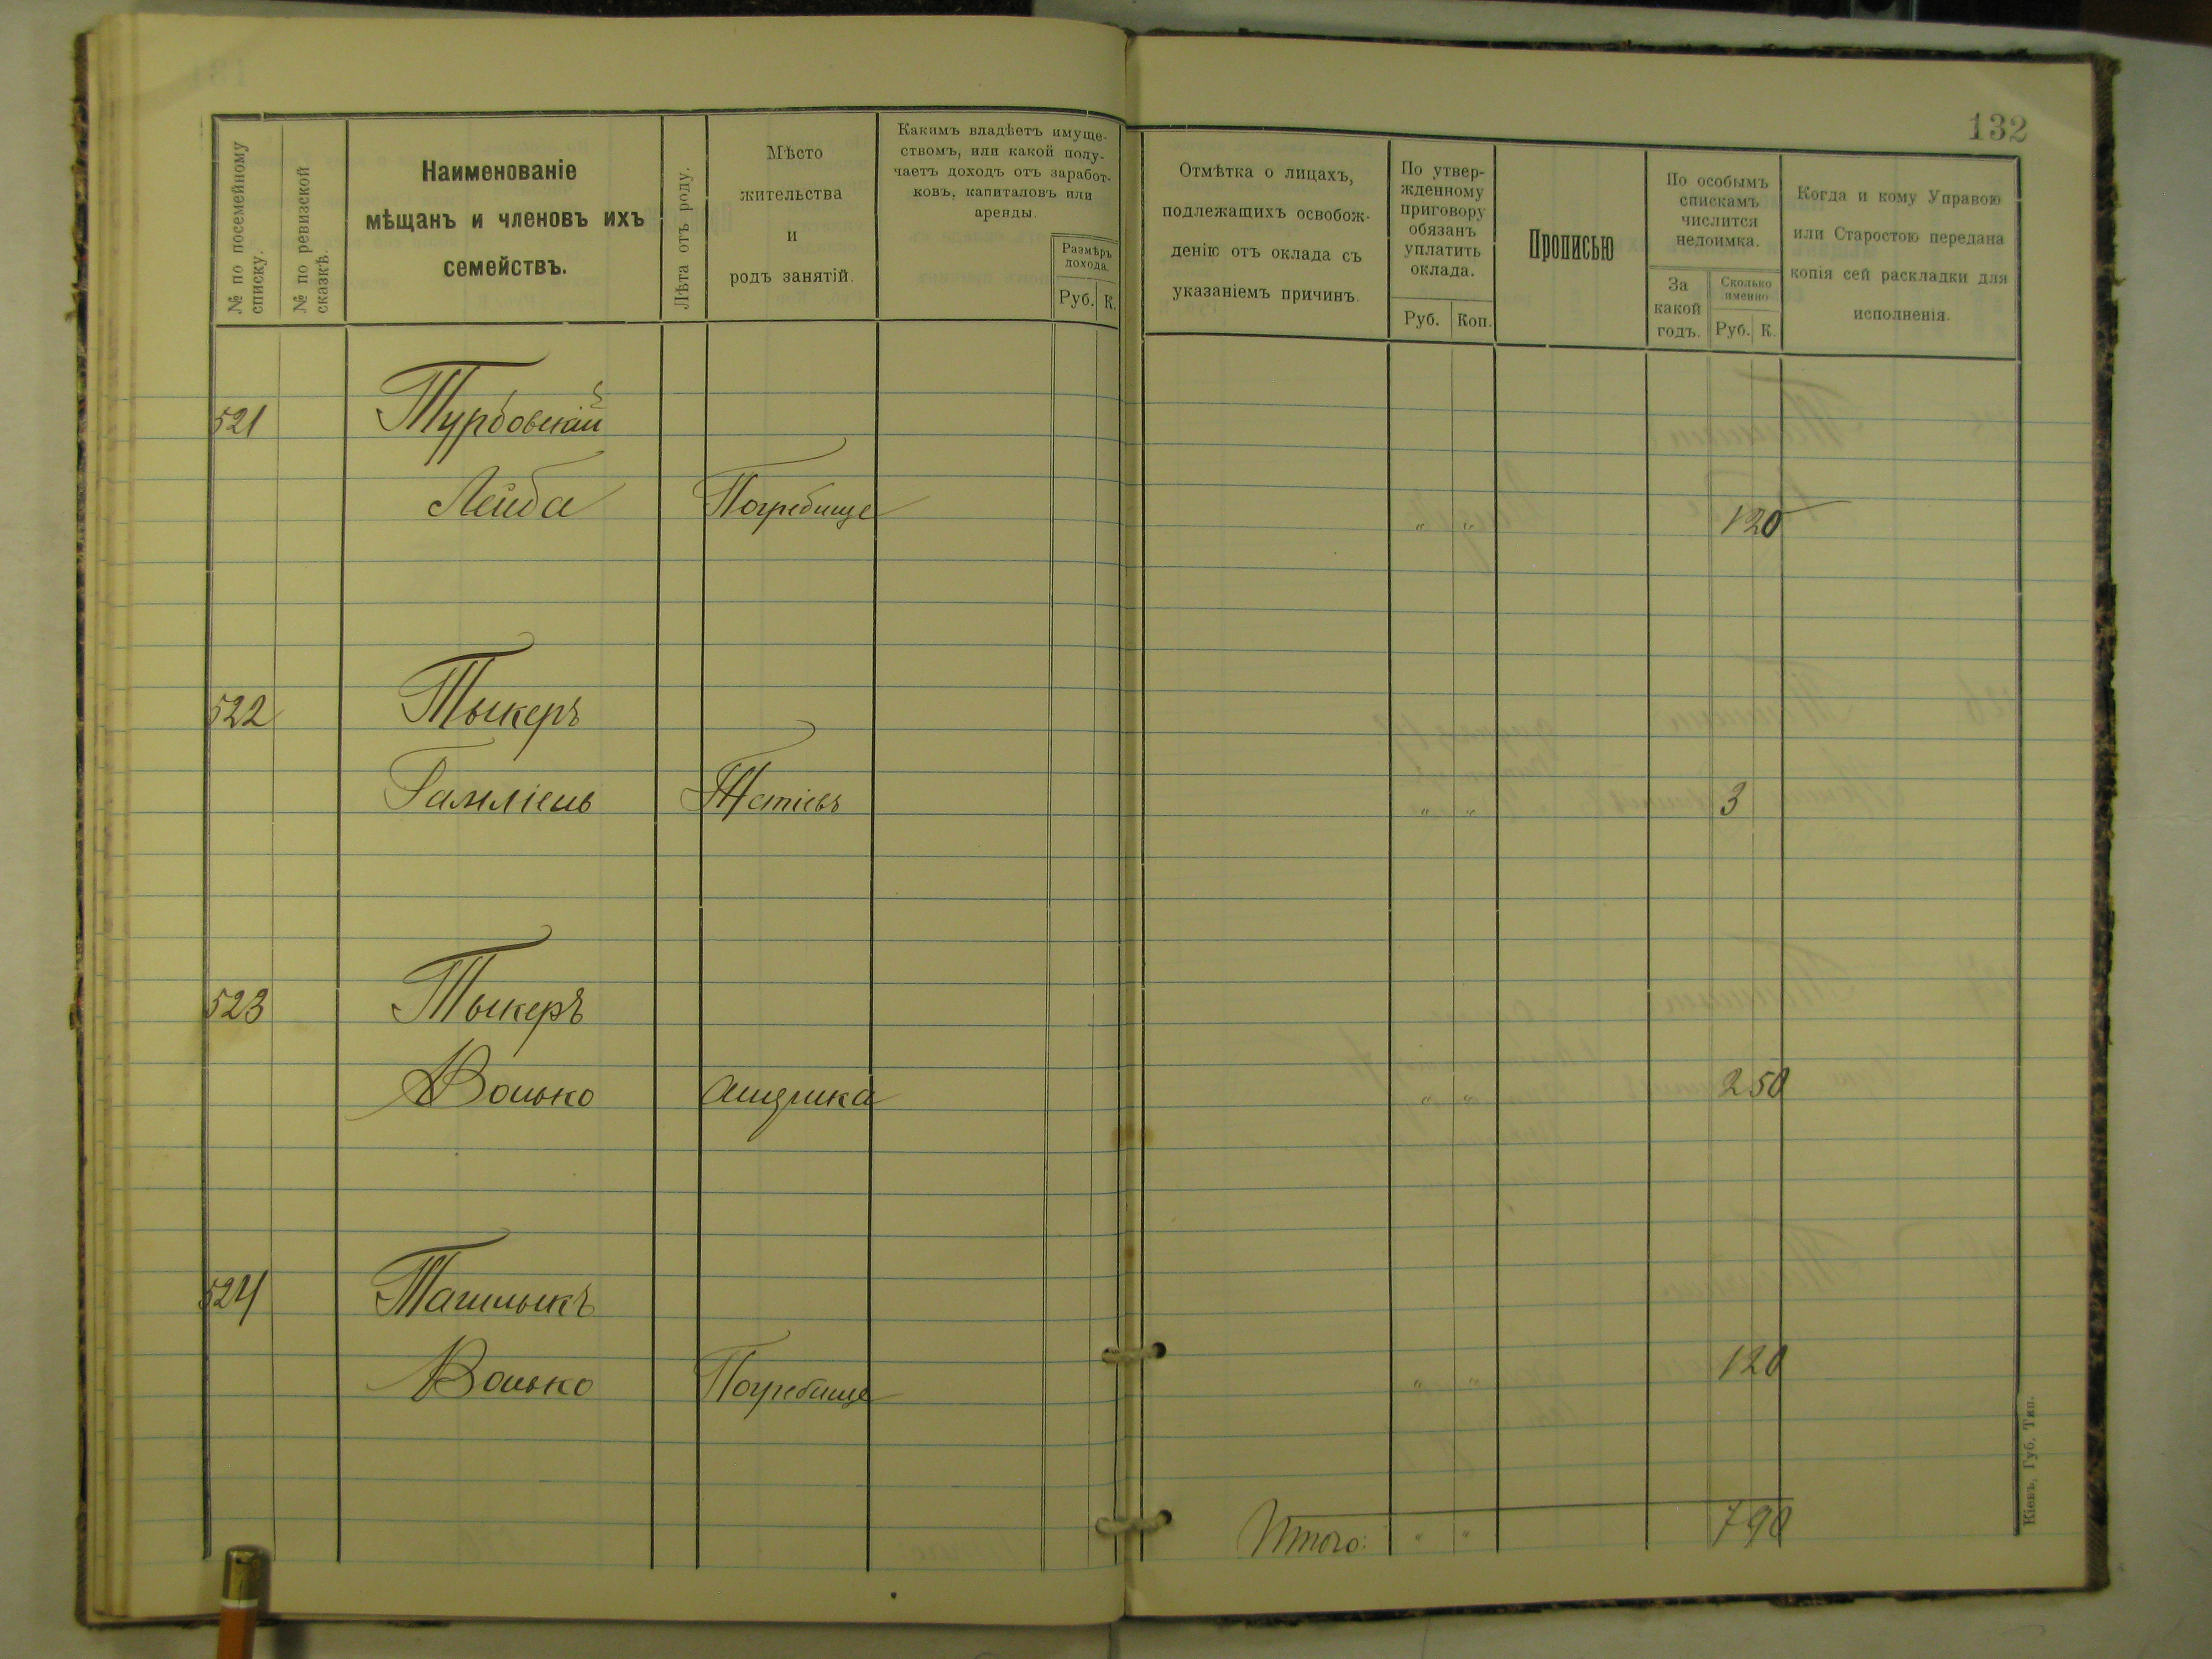 132
№ по посемейному списку.
№ по ревизской сказкѣ.
Наименованіе
мѣщанъ и членовъ ихъ
семействъ.
Лѣта отъ роду.
Мѣсто
жительства
и
родъ занятій.
Какимъ владѣетъ имуще-
ствомъ, или какой полу-
чаетъ доходъ отъ заработ-
ковъ, капиталовъ или
аренды.
Размѣръ
дохода.
Руб. К.
Отмѣтка о лицахъ,
подлежащихъ освобож-
денію отъ оклада съ
указаніемъ причинъ.
По утвер-
жденному
приговору
обязанъ
уплатить
оклада.
Руб. Коп.
Прописью
По особымъ
спискамъ
числится
недоимка.
За
какой
годъ.
Сколько
именно
Руб. К.
Когда и кому Управою
или Старостою передана
копія сей раскладки для
исполненія.
521 Турбовскій
Лейба Погребище " " 1 20
522 Тыкеръ
Тетіевъ " " 3
523 Тыкеръ
Волько " " 2 50
524 Ташлыкъ
Волько Погребище " " 1 20
Итого: " " 7 90
Кіевъ, Губ. Тип.